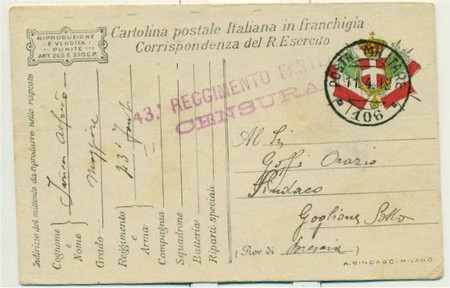 RIPRODUZIONE
E VENDITA
PUNITE
ART. 268 E 270 C.P.
Cartolina postale Italiana in franchigia
Corrispondenza del R. Esercito
43.° REGGIMENTO FANT
CENSURA
POSTA MILITARE
106
Indirizzo del mittente da riprodurre nella risposta
Cognome e Nome
Grado Maggiore
Reggimento e Arma 43° Fant
Compagnia
Squadrone
Batteria
Riparti speciali
Al Sig
Goffi Orazio
Sindaco
Goglione Sotto
(Prov di Brescia)
A. BINDA & C - MILANO